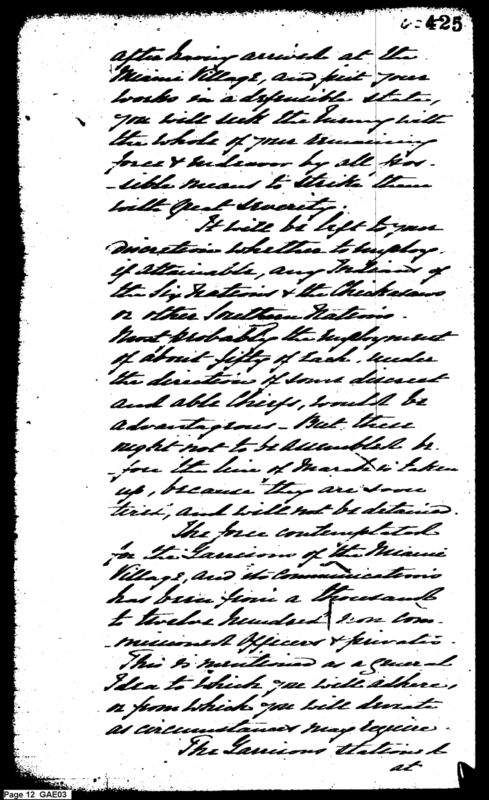 425
after having arrived at the
Miami Village, and put your
works in a defensible state,
you will seek the Enemy with
the whole of your remaining
force & endeavor by all pos-
-sible means to strike them
with great severity.
It will be left to your
discretion whether to employ,
if attainable, any Indians of
the Six Nations & the Chickasaws
or other Southern Nations.
Most probably the employment
of about fifty of each, under
the direction of some discreet
and able Chiefs, would be
advantageous - But these
ought not to be assembled be-
-fore the line of March is taken
up, because they are soon
tired, and will not be detained.
The force contemplated
for the Garrisons of the Miami
Village, and its communications
has been from a thousand
to twelve hundred non com-
-missioned Officers & privates.
This is mentioned as a general
Idea to which you will adhere,
or from which you will deviate
as circumstances may require.
The Garrisons stationed
at
Page 12 GAE03